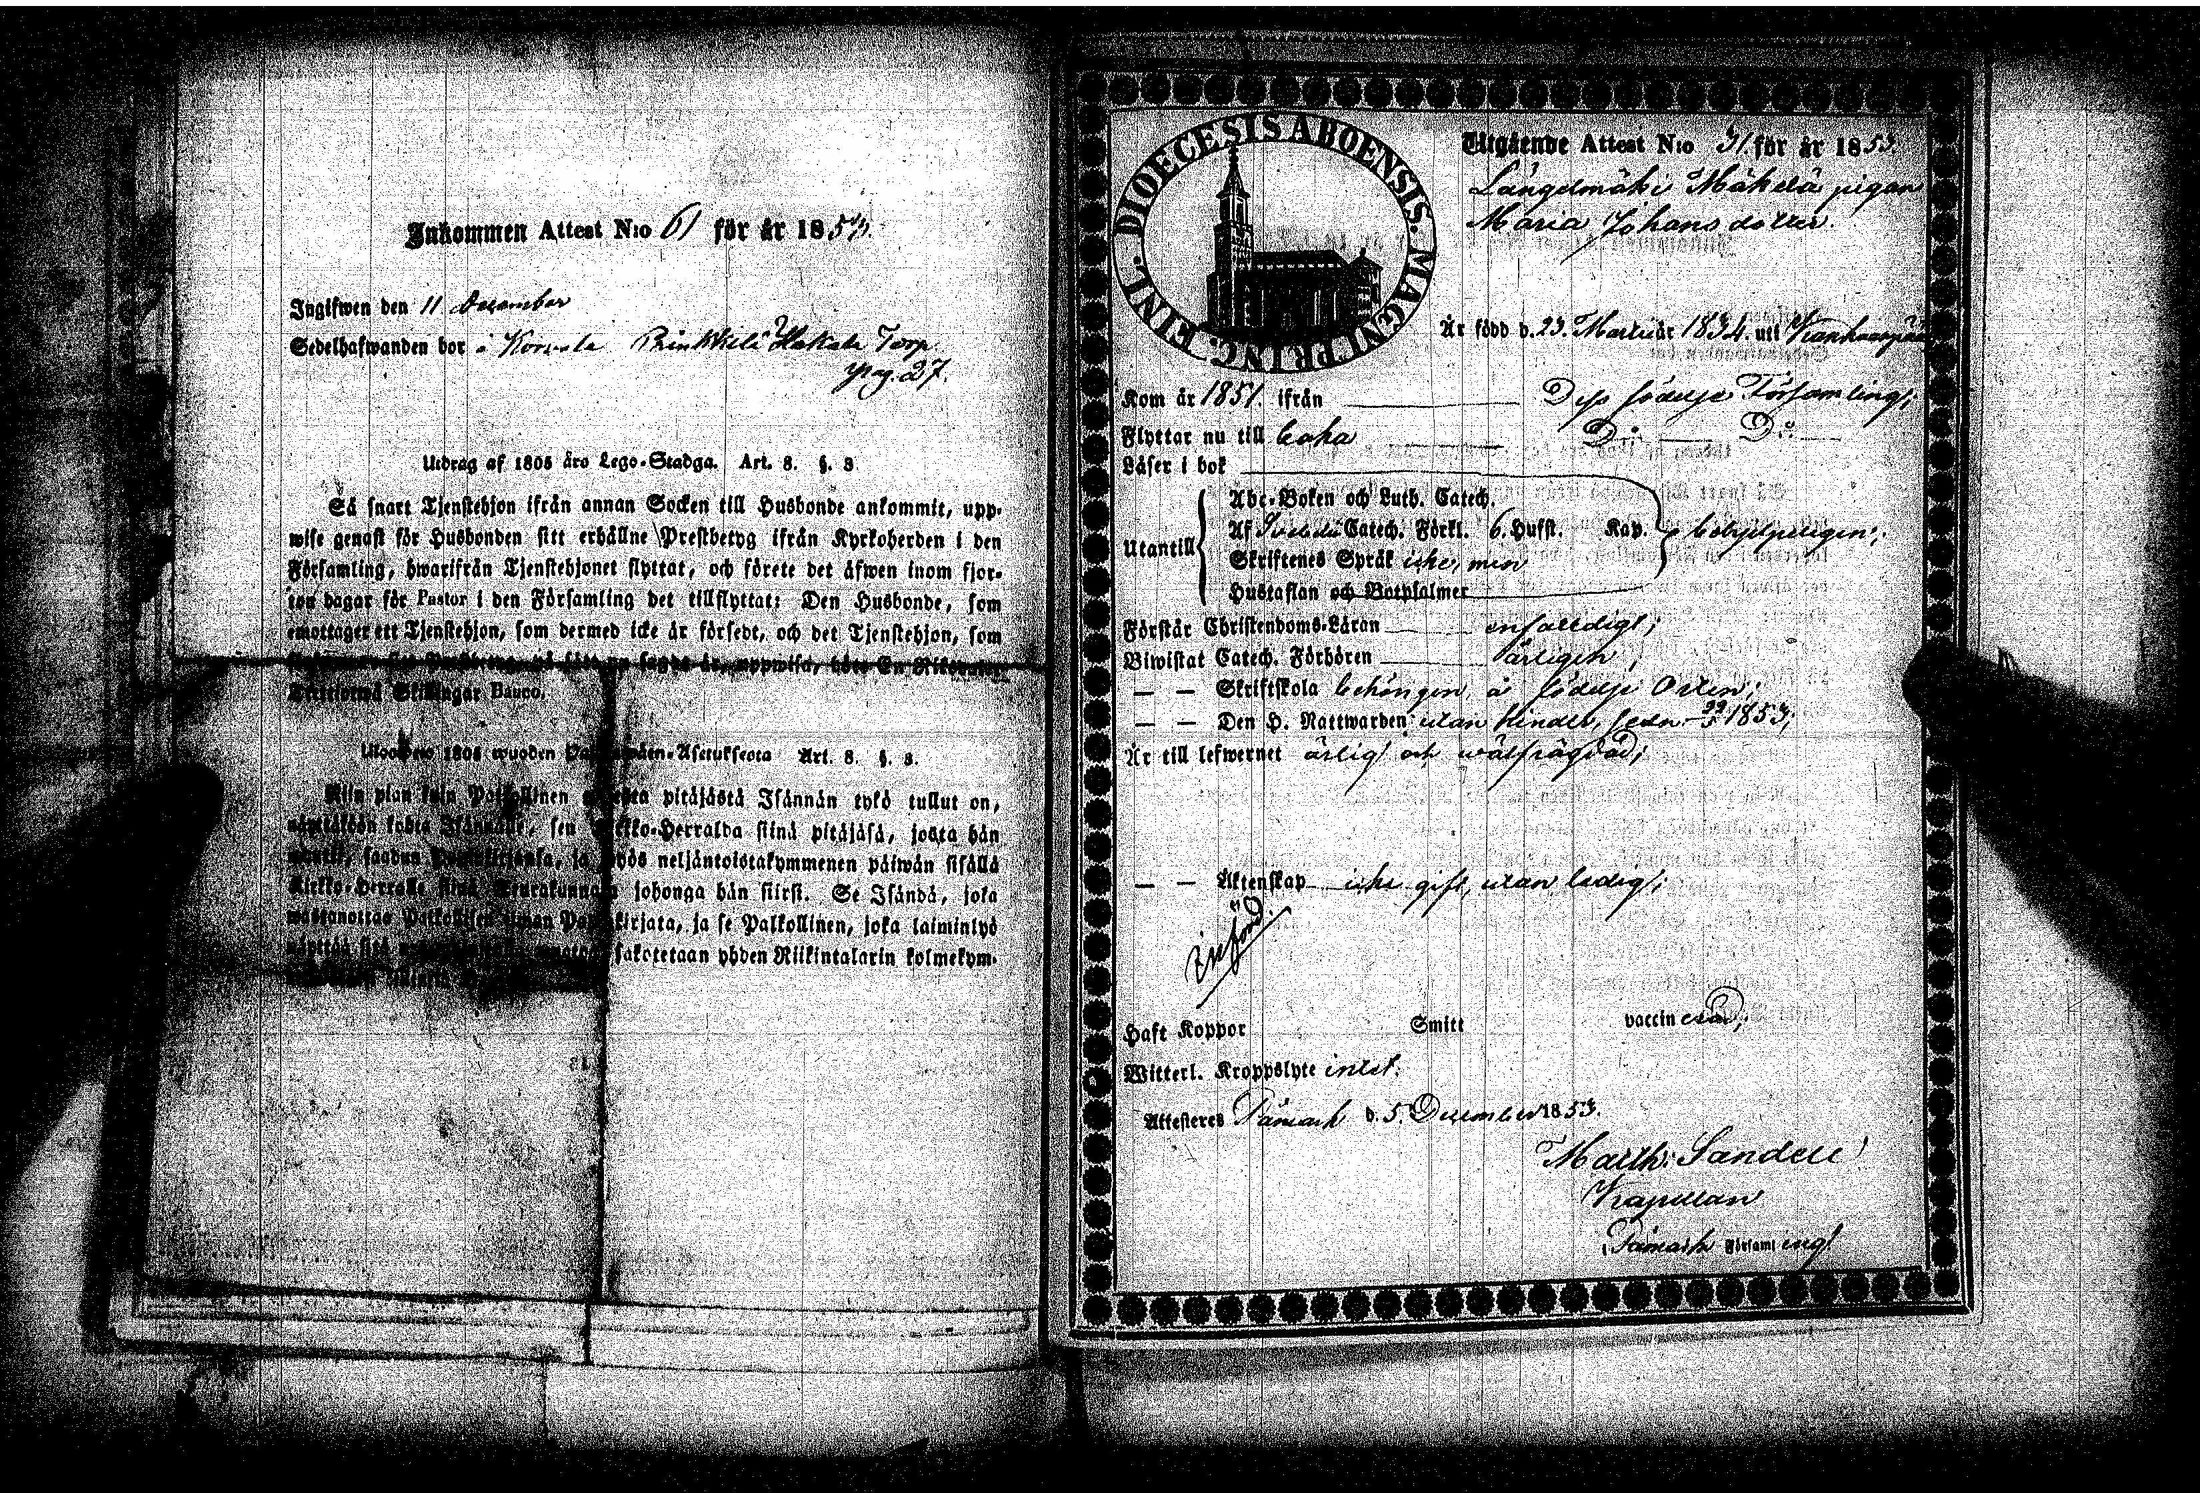 Inkommen Attest N:o 61 för år 1853.
Ingifwen den 11 December
Sedelhafwanden bor i Hakala Torp
pag. 27.
Utdrag af 1805 års Lego-Stadga. Art. 8. §. 8.
Så snart Tjenstehjon ifrån annan Socken till Husbonde ankommit, upp-
wise genast för Husbonden sitt erhållne Prestbetyg ifrån Kyrkoherden i den
Församling, hwarifrån Tjenstehjonet flyttat, och förete det äfwen inom fjor-
ton dagar för Pastor i den Församling det tillflyttat; Den Husbonde, som
emottager ett Tjenstehjon, som dermed icke är försedt, och det Tjenstehjon, som
på sätt nu sagdt är, uppwisa, böte En Riksdaler
Skillingar Banco.
1805 wuoden Asetuksesta Art. 8. §. 8.
Niin pian kuin Palkollinen pitäjästä Isännän tykö tullut on,
sen Kirkko-Herralda siinä pitäjäsä, josta hän
saadun ja myös neljäntoistakymmenen päiwän sisällä
Kirkko-Herralle siinä Seurakunnasa johonga hän siirsi. Se Isändä, joka
wastanottaa Palkollisen ilman Papinkirjata, ja se Palkollinen, joka laiminlyö
näyttää sitä sakotetaan yhden Riikintalarin kolmekym-
DIOECESIS ABOENSIS. MAGNI PRINC. FINL.
Utgående Attest N:o 31 för år 1853
Längelmäki Mäkelä pigan
Maria Johansdotter.
Är född d. 23. Martii år 1834. uti Kankaanpää
Kom år 1851. ifrån Dess födelse Församling;
Flyttar nu till D:o D:o
Läser i bok
Utantill
Abc-Boken och Luth. Catech.
Af Catech. Förkl. 6. Hufst. Kap.
Skriftenes Språk icke, men
Hustaflan och Botpsalmer
Förstår Christendoms-Läran enfaldigt;
Biwistat Catech. Förhören årligen;
— — Skriftskola behörigen å födelse Orten;
— — Den H. Nattwarden utan hinder, sedn 1853;
Är till lefwernet ärligt och wälfrägdad;
— — Äktenskap icke gift, utan ledig;
Haft Koppor Smitt vaccinerad;
Witterl. Kroppslyte intet.
Attesteres Påmark d. 5. December 1853.
Matth: Sandell
Kapellan
i Påmark Församling